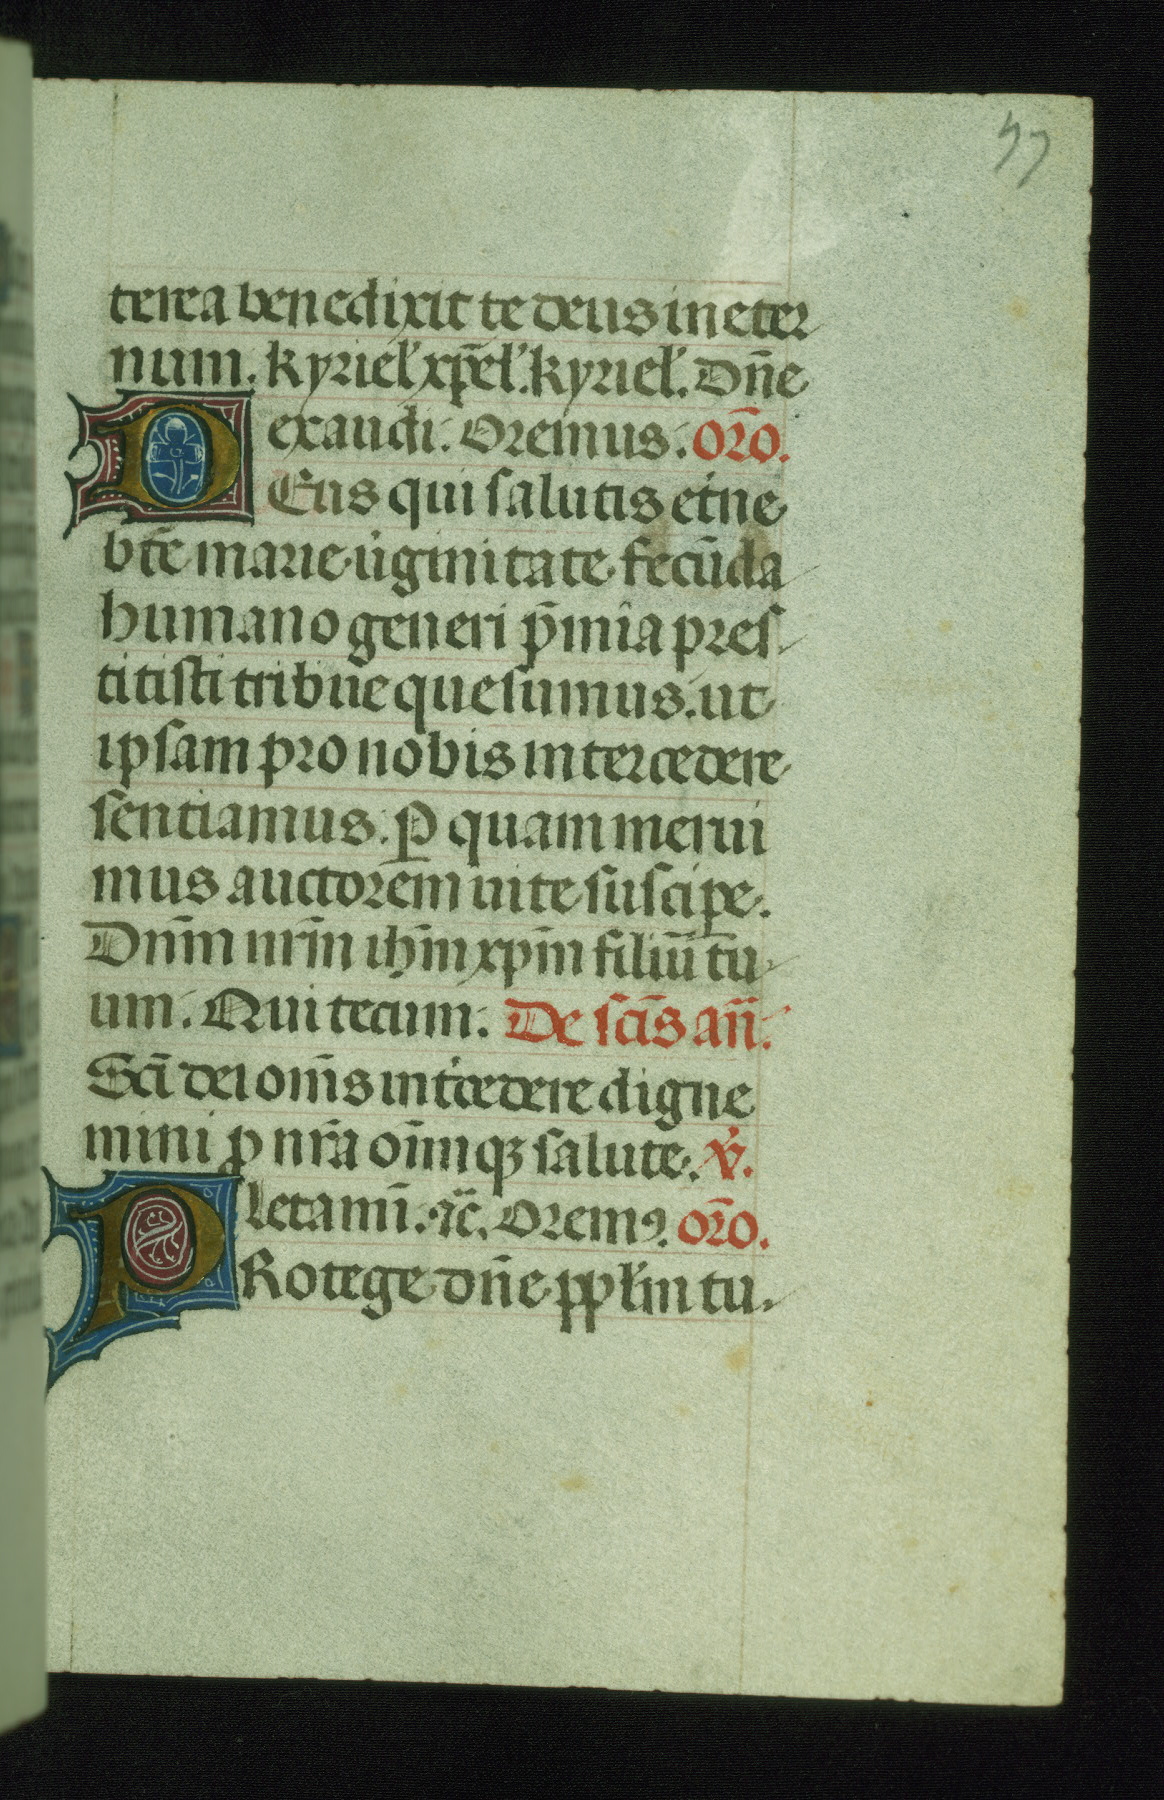 57
terea benedixit te deus in eter
num. kyriel' xpēl'. kyriel'. Dn̄e
exaudi. Oremus. or̄o.
DEus qui salutis etne
bt̄e marie uiginitate fecūda
humano generi p̄mia pres
titisti tribue quesumus. ut
ipsam pro nobis intercedere
sentiamus. ꝑ quam merui
mus auctorem uite suscipe.
Dnm̄ nrm̄ ihm̄ xpm̄ filiū tu
um. Qui tecum. De scīs an̄.
Scī dei omn̄s intcedere digne
mini ꝓ nrā oīmqꝫ salute. ℣.
letamī. ⁊c̄. Oremꝰ. or̄o.
PRotege dn̄e pplm̄ tu.